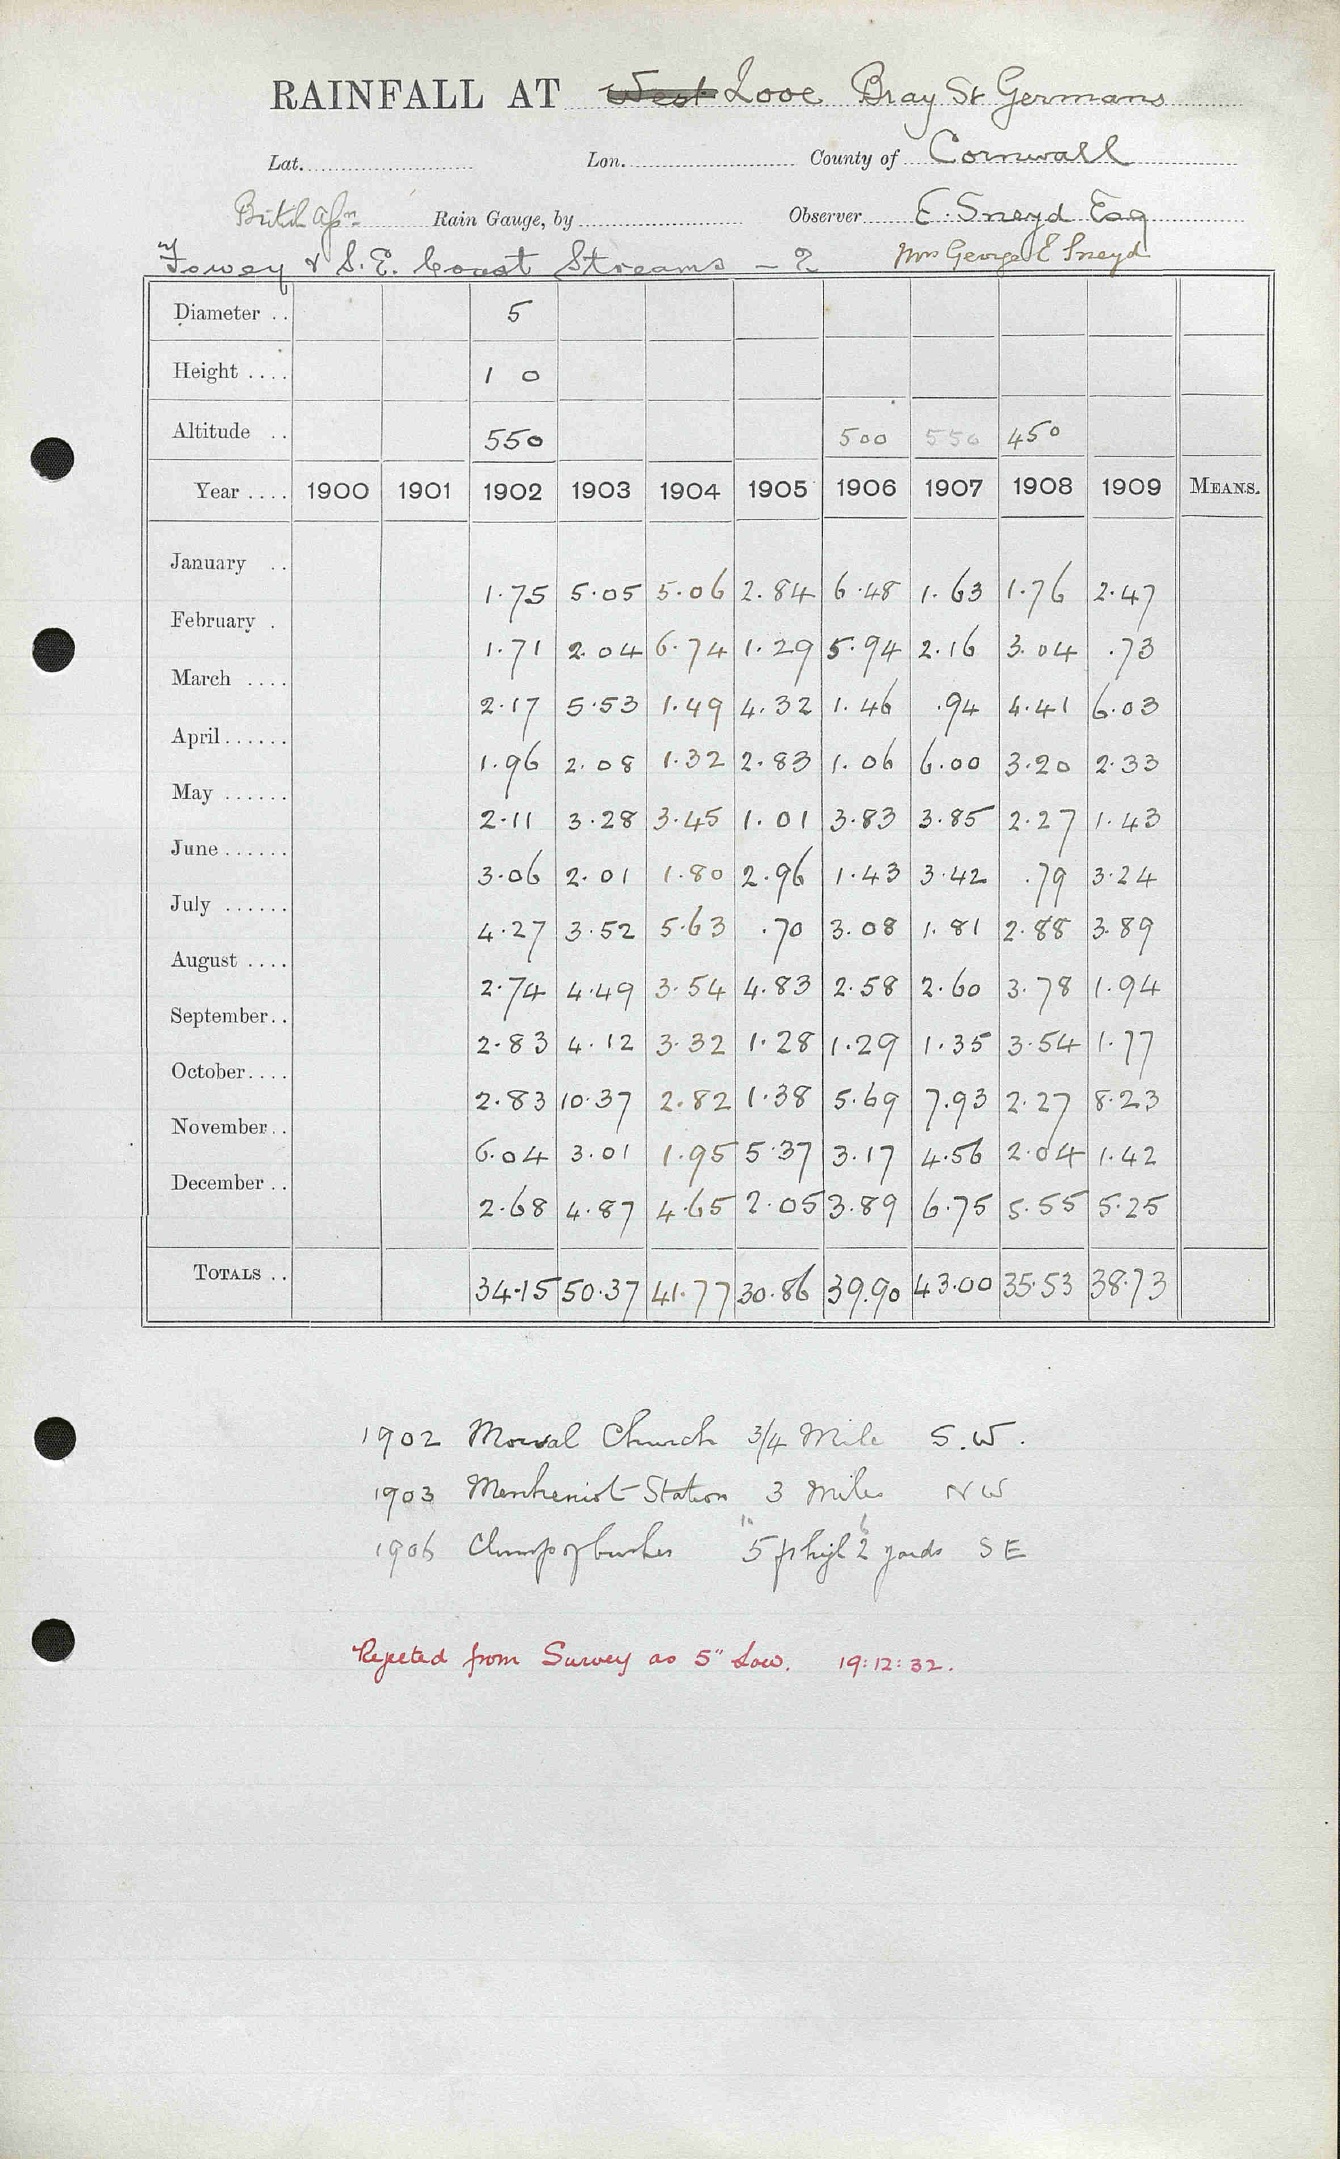 RAINFALL AT West Looe Bray St Germans
Lat. Lon. County of Cornwall
Rain Gauge, by Observer E. Sneyd Esq
Fowey & S.E. Coast Streams - ? Mrs George E Sneyd
Diameter .. 5
Height .... 1 0
Altitude .. 550 500 550 450
Year .... 1900 1901 1902 1903 1904 1905 1906 1907 1908 1909 MEANS.
January .. 1.75 5.05 5.06 2.84 6.48 1.63 1.76 2.47
February . 1.71 2.04 6.74 1.29 5.94 2.16 3.04 .73
March .... 2.17 5.53 1.49 4.32 1.46 .94 4.41 6.03
April...... 1.96 2.08 1.32 2.83 1.06 6.00 3.20 2.33
May ...... 2.11 3.28 3.45 1.01 3.83 3.85 2.27 1.43
June ...... 3.06 2.01 1.80 2.96 1.43 3.42 .79 3.24
July ...... 4.27 3.52 5.63 .70 3.08 1.81 2.88 3.89
August .... 2.74 4.49 3.54 4.83 2.58 2.60 3.78 1.94
September.. 2.83 4.12 3.32 1.28 1.29 1.35 3.54 1.77
October.... 2.83 10.37 2.82 1.38 5.69 7.93 2.27 8.23
November.. 6.04 3.01 1.95 5.37 3.17 4.56 2.04 1.42
December .. 2.68 4.87 4.65 2.05 3.89 6.75 5.55 5.25
TOTALS .. 34.15 50.37 41.77 30.86 39.90 43.00 35.53 38.73
1902 Morval Church 3/4 Mile S.W.
1903 Menheniot Station 3 Miles NW
1906 Clump of bushes 5 ft high 2 yards SE
Rejected from Survey as 5" low. 19:12:32.